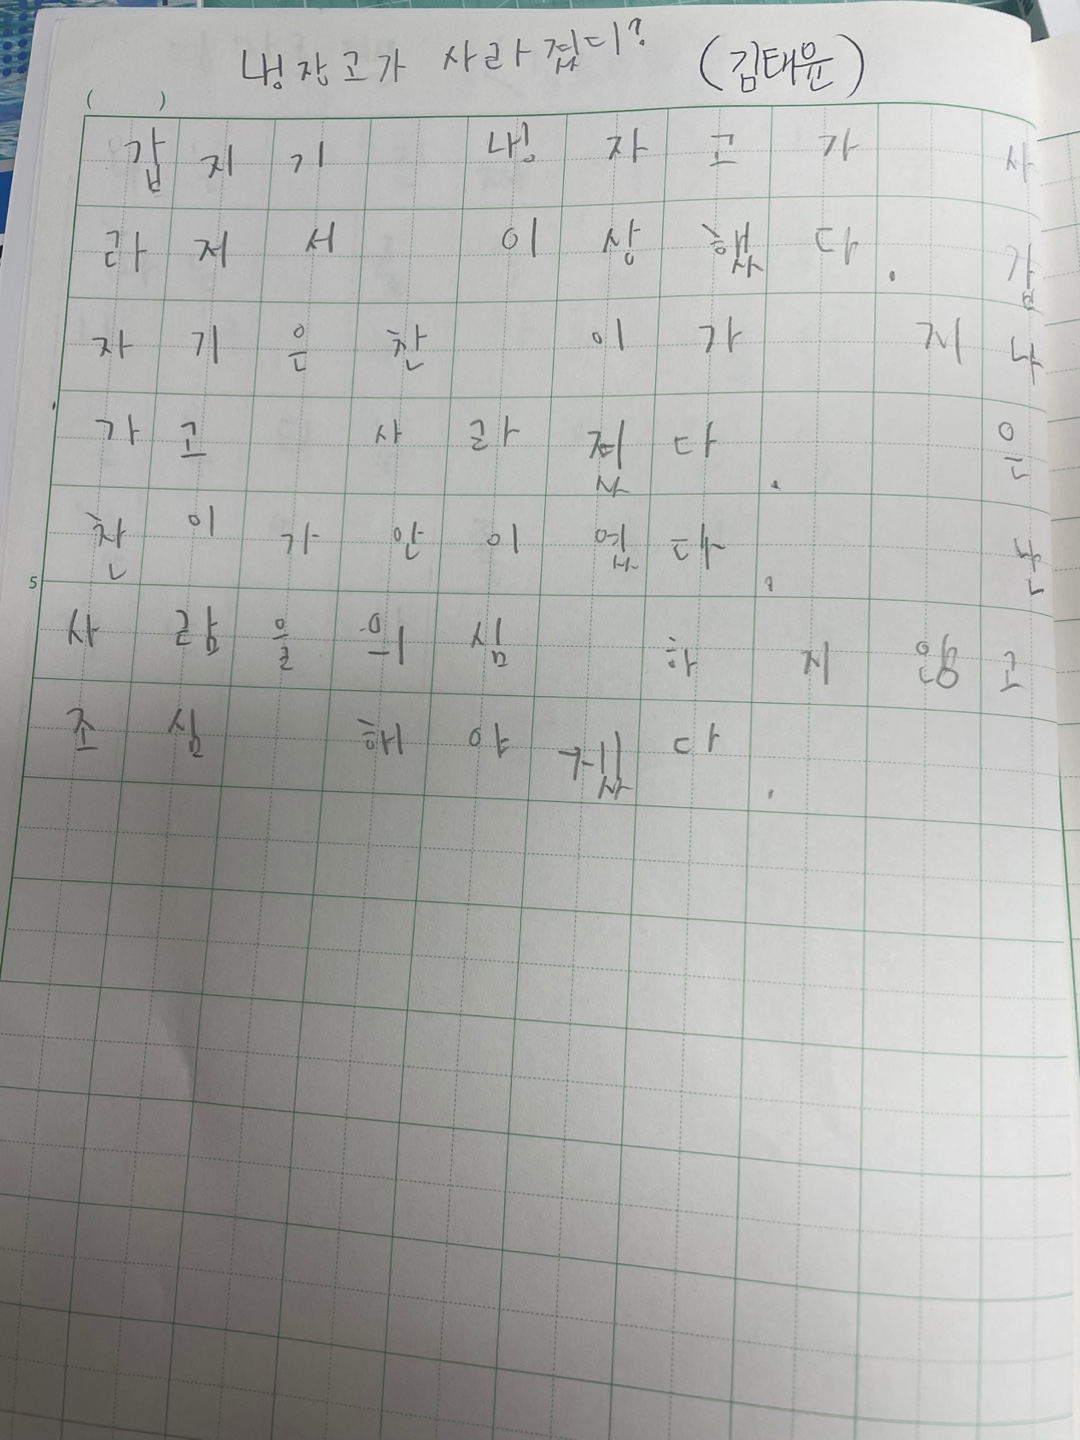 냉장고가 사라졌디? (김태윤)
( )
갑지기 냉자고가 사
라저서 이상했다. 갑
자기 은찬이가 지나
가고 사라젔다. 은
찬이가 안이였다. 난
5
사람을 의심 하지 않고
조심 해야 겠다.